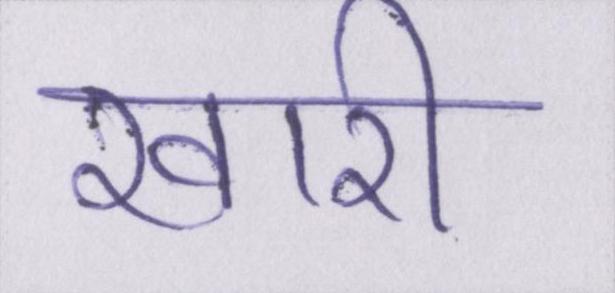 खारी